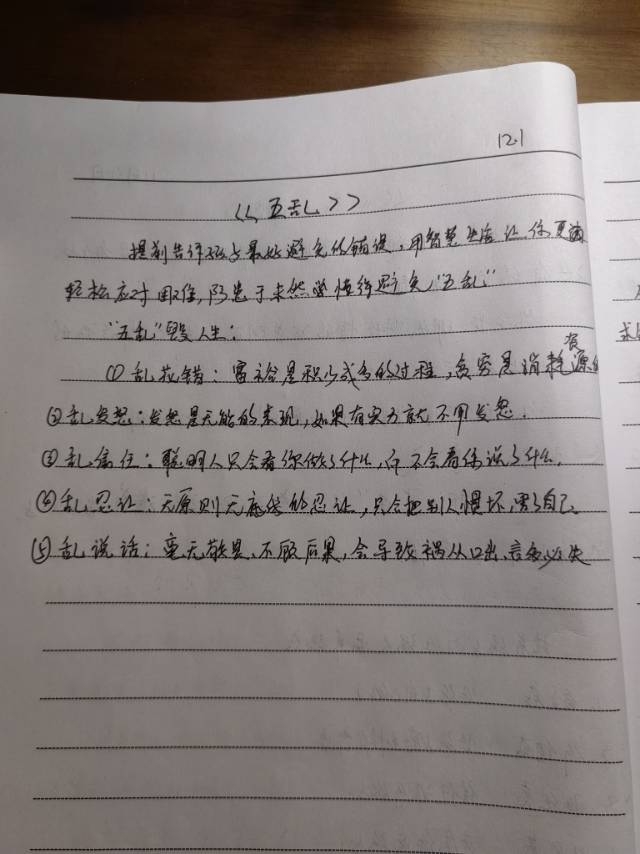 12.1
《五乱》
提前告诉孩子最好避免的错误，用智慧生活让你更
轻松应对困难，防患于未然学懂得避免"五乱"
"五乱"毁人生：
①乱花钱：富裕是积少成多的过程，贫穷是消耗资源的
②乱发怒：发怒是无能的表现，如果有实力就不用发怒.
③乱信任：聪明人只会看你做了什么，而不会看你说了什么.
④乱忍让：无原则无底线的忍让，只会把别人惯坏，害了自己.
⑤乱说话：毫无敬畏、不顾后果，会导致祸从口出、言多必失